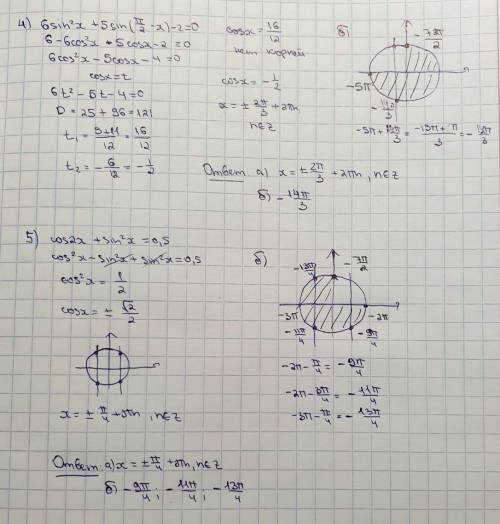 4) 6sin²x + 5sin(π/2 - x) - 2 = 0
6 - 6cos²x + 5cosx - 2 = 0
6cos²x - 5cosx - 4 = 0
cosx = t
6t² - 5t - 4 = 0
D = 25 + 96 = 121
t₁ = (5+11)/12 = 16/12
t₂ = -6/12 = -1/2
cosx = 16/12
нет корней
cosx = -1/2
x = ± 2π/3 + 2πn
n∈Z
б)
-7π/2
-5π
-5π + π/3 = (-15π + π)/3 = -14π/3
Ответ: а) x = ± 2π/3 + 2πn, n∈Z
б) -14π/3
5) cos2x + sin²x = 0,5
cos²x - sin²x + sin²x = 0,5
cos²x = 1/2
cosx = ± √2/2
x = ± π/4 + πn, n∈Z
б)
-13π/4
-7π/2
-3π
-2π
-11π/4
-9π/4
-2π - π/4 = -9π/4
-2π - 3π/4 = -11π/4
-3π - π/4 = -13π/4
Ответ: а) x = ± π/4 + πn, n∈Z
б) -9π/4; -11π/4; -13π/4